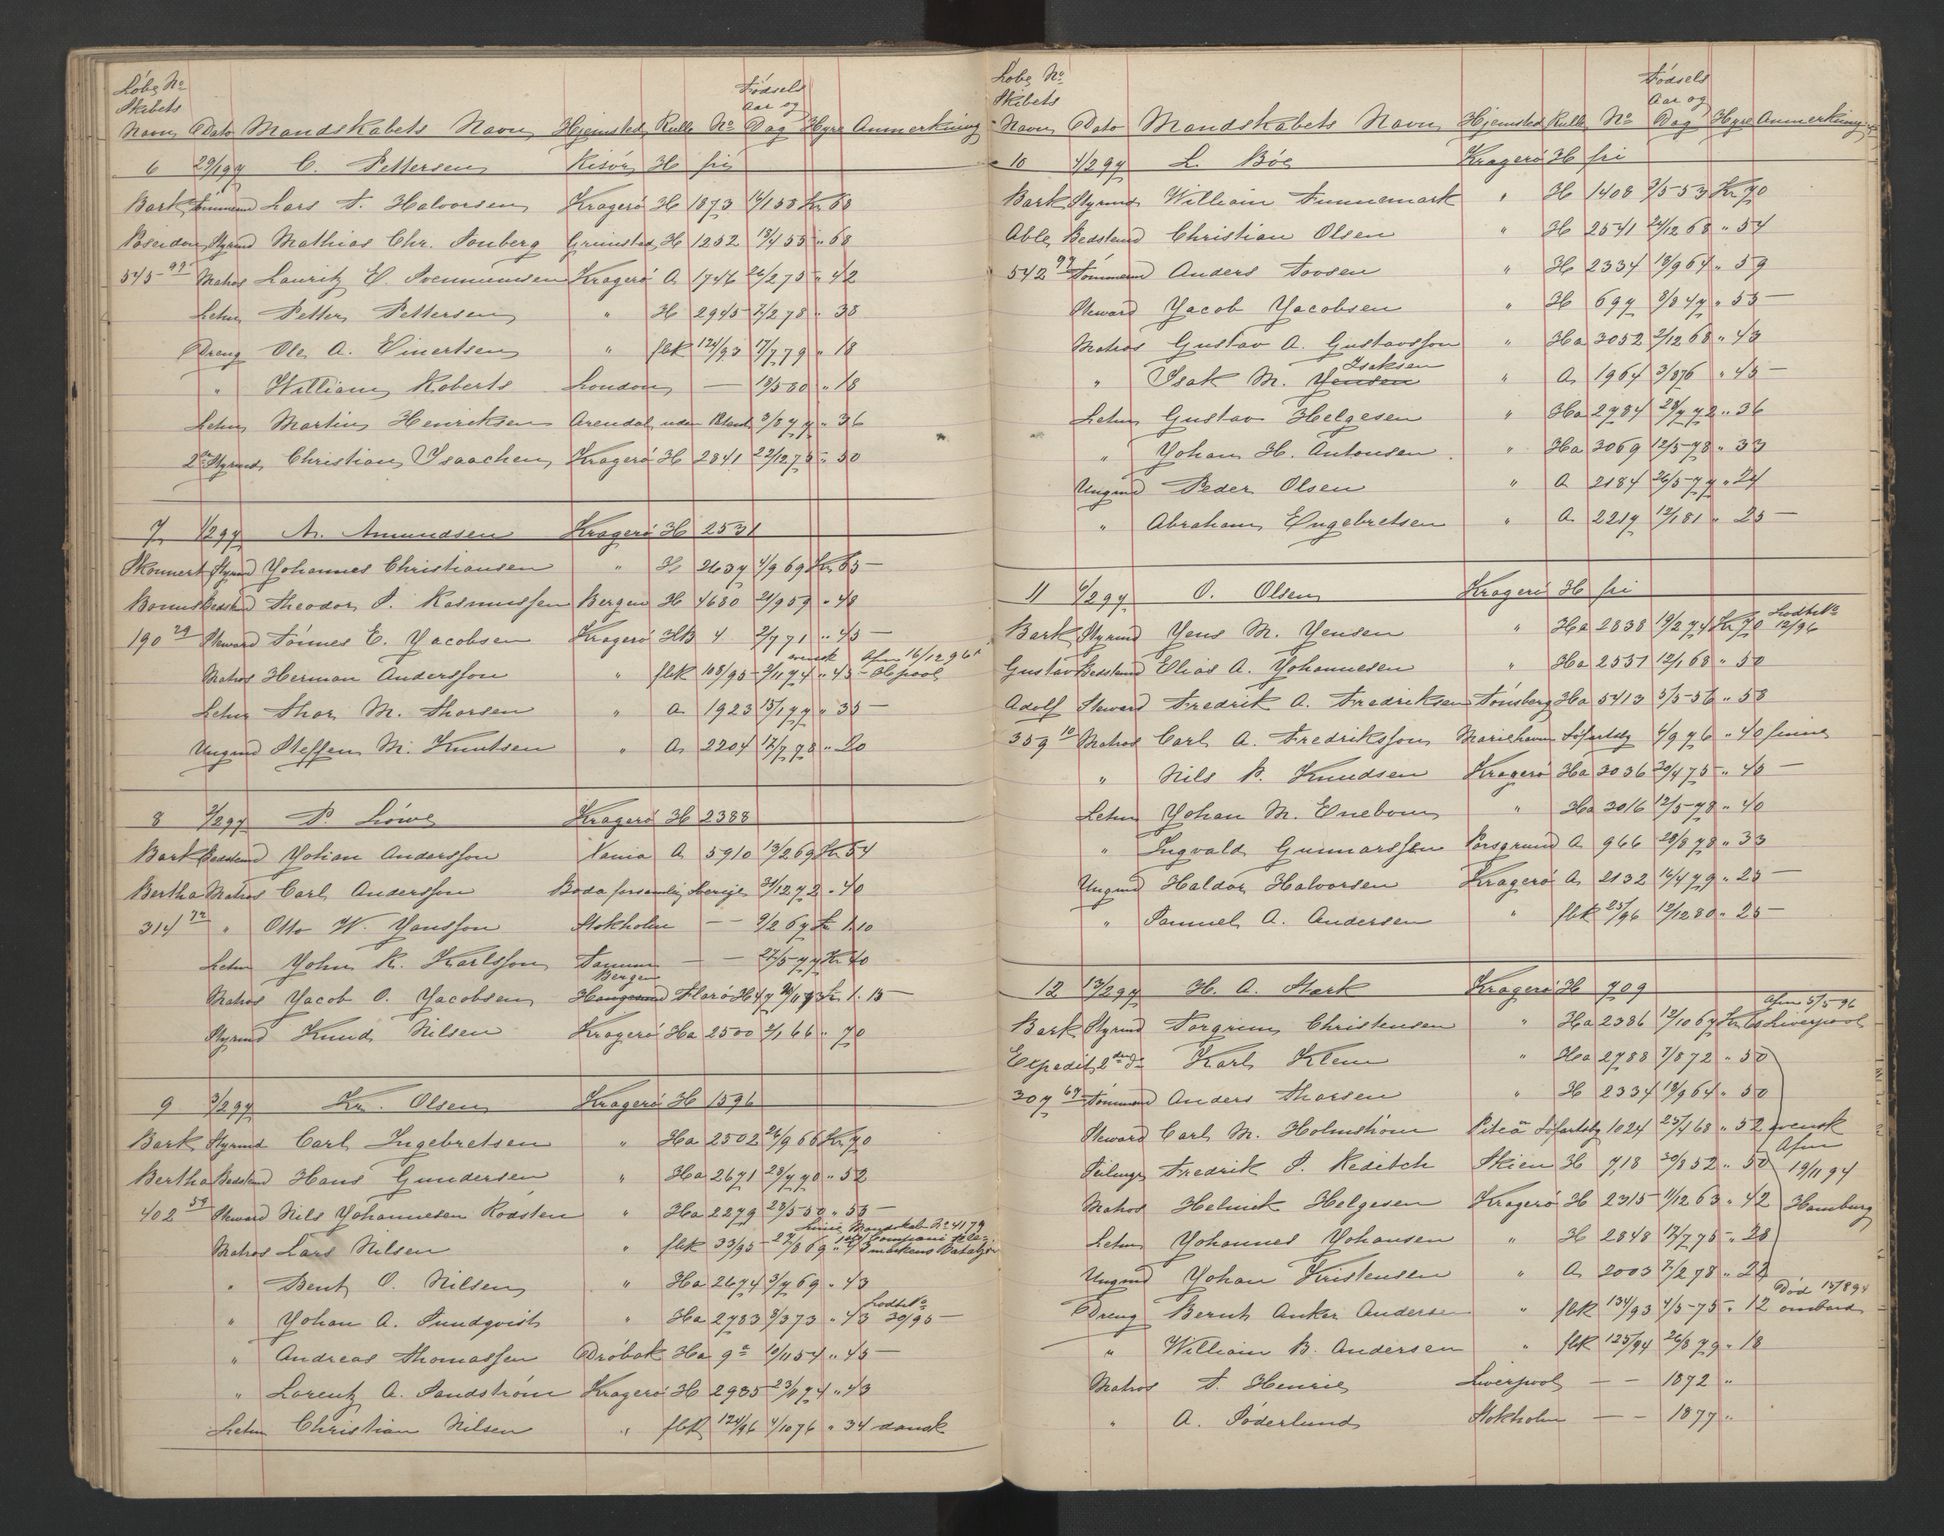 Løbe No
Skibets
Navn Dato Mandskabets Navn Hjemsted Rulle No Fødsels Aar og Dag Hyre Anmerkning
6 29/1 97 C. Pettersen Risør H fri
Bark Tømmermd Lars T. Halvorsen Kragerø H 1873 Kr 68
Poseidon Styrmd Mathias Chr. Sonberg Grimstad H 1252 13/4 55 " 68
545 Matros Lauritz E. Svenumsen Kragerø A 1746 26/2 75 " 42
Letm Petter Pettersen " H 2945 7/2 78 " 38
Dreng Ole A. Einertsen " flk 124/93 17/7 79 " 18
" William Roberts London — 13/5 80 " 18
Letm Martin Henriksen Arendal uden Patent 3/8 77 " 36
2n Styrmd Christian Isaachen Kragerø H 2841 22/12 75 " 50
7 1/2 97 A. Amundsen Kragerø H 2531
Skonnert Styrmd Yohannes Christiansen " H 2637 4/9 69 Kr 65 —
Bonus Bedstmd Theodor P. Rasmussen Bergen H 4680 21/9 59 " 48
190 29 Steward Tønnes E. Yacobsen Kragerø HB 4 2/7 71 " 45 —
Matros Herman Andersson " flk 108/95 2/11 74 svensk " 45 — Afm 16/12 96 i Hpool
Letm Thor M. Thorsen " A 1923 15/1 77 " 35 —
Ungmd Steffen M. Knutsen " A 2204 12/7 78 " 20
8 2/2 97 P. Løwe Kragerø H 2388
Bark Bedstmd Yohan Andersson Xania A 5910 13/2 69 Kr 54
Bertha Matros Carl Andersson Boda forsamling Sverige 31/12 72 " 40
314 72 " Otto W. Yansson Stokholm — — 9/2 67 1.10
Letm John R. Karlsson — — 27/5 77 Kr 40
Matros Yacob O. Yacobsen Bergen Florø H 47 1. 15 —
Styrmd Knud Nilsen Kragerø Ha 2500 2/1 66 " 70
9 3/2 97 Kr. Olsen Kragerø H 1596
Bark Styrmd Carl Ingebretsen " Ha 2502 26/9 66 Kr 70
Bertha Bedstmd Hans Gundersen " Ha 2671 28/7 70 " 52
402 59 Steward Nils Yohannesen Rödsten " Ha 2279 28/5 50 " 55 —
Matros Lars Nilsen " flk 33/95 27/8 69 " Linie Mandskab No 4179 Compani Batalion
" Bent O. Nilsen " Ha 2674 3/7 69 " 43
" Yohan A. Sundqvist " Ha 2783 8/3 73 " 43 Lodts No 30/95 —
" Andreas Thomassen Drøbak Ha 9a 10/11 54 " 45 —
" Lorentz A. Sandstrøm Kragerø H 2935 23/11 74 " 43
Letm Christian Nilsen " flk 124/96 4/10 76 " 34 dansk
Løbe No
Skibets
Navn Dato Mandskabets Navn Hjemsted Rulle No Fødsels Aar og Dag Hyre Anmerkning
10 4/2 97 L. Bøe Kragerø H fri
Bark Styrmd William Tunnemark " H 1408 3/5 53 Kr 70
Able Bedstmd Christian Olsen " H 2541 24/12 68 " 54
542 97 Tømmermd Anders Tovsen " H 2334 13/9 64 " 59
Steward Yacob Yacobsen " H 697 8/8 47 " 55 —
Matros Gustav A. Gustavsson " Ha 3052 2/12 68 " 43
" Isak M. Yensen Isaksen " A 1964 3/8 76 " 45 —
Letm Gustav Helgesen " Ha 2784 28/7 72 " 36
" Yohan H. Antonsen " Ha 3069 12/5 78 " 33
Ungmd Peder Olsen " A 2184 26/5 77 " 24
" Abraham Engebretsen " A 2219 12/1 81 " 25 —
11 6/2 97 O. Olsen Kragerø H fri
Bark Styrmd Yens M. Yensen " Ha 2838 19/2 74 Kr 70 Lodts No 12/96
Gustav Bedstmd Elias A. Yohannesen " Ha 2551 12/1 68 " 50
Adolf Steward Fredrik A. Fredriksen Tønsberg Ha 5413 5/5 56 " 58
359 10 Matros Carl A. Fredriksson Mariehavn Søfartsbg 6/9 76 " 40 finne
" Nils P. Knudsen Kragerø Ha 3036 30/4 75 " 45 —
Letm Yohan M. Enebom " Ha 3016 12/5 78 " 40
" Ingvald Gunnarssen Porsgrund A 966 28/8 78 " 33
Ungmd Haldor Halvorsen Kragerø A 2132 16/4 79 " 25 —
" Samuel A. Andersen " flk 25/96 12/12 80 " 25 —
12 13/2 97 H. A. Stark Kragerø H 709
Bark Styrmd Torgrim Christensen " Ha 2386 12/10 67 Kr Afm 5/5 96 Liverpool
Expedit 2den do Karl Klem " Ha 2788 7/8 72 " 50
307 67 Tømmermd Anders Thorsen " H 2334 13/9 64 " 50
Steward Carl M. Holmstrøm Piteå Søfartsbg 1024 25/4 68 " 52 svensk
Seilmgr Fredrik P. Reditch Skien H 718 30/8 52 " 50 Afm 19/11 94
Matros Helmik Helgesen Kragerø H 2315 11/12 63 " 42 Hamburg
Letm Yohannes Yohansen " H 2848 12/7 75 " 28
Ungmd Yohan Kristensen " A 2003 7/2 78 " 22
Dreng Bernt Anker Andersen " flk 134/93 4/5 75 " 12 Død 15/8 94 ombord
" William B. Andersen " flk 125/94 26/8 79 " 18
Matros T. Henrie Liverpool — — 1872 "
" A. Søderlund Stokholm — — 1877 "